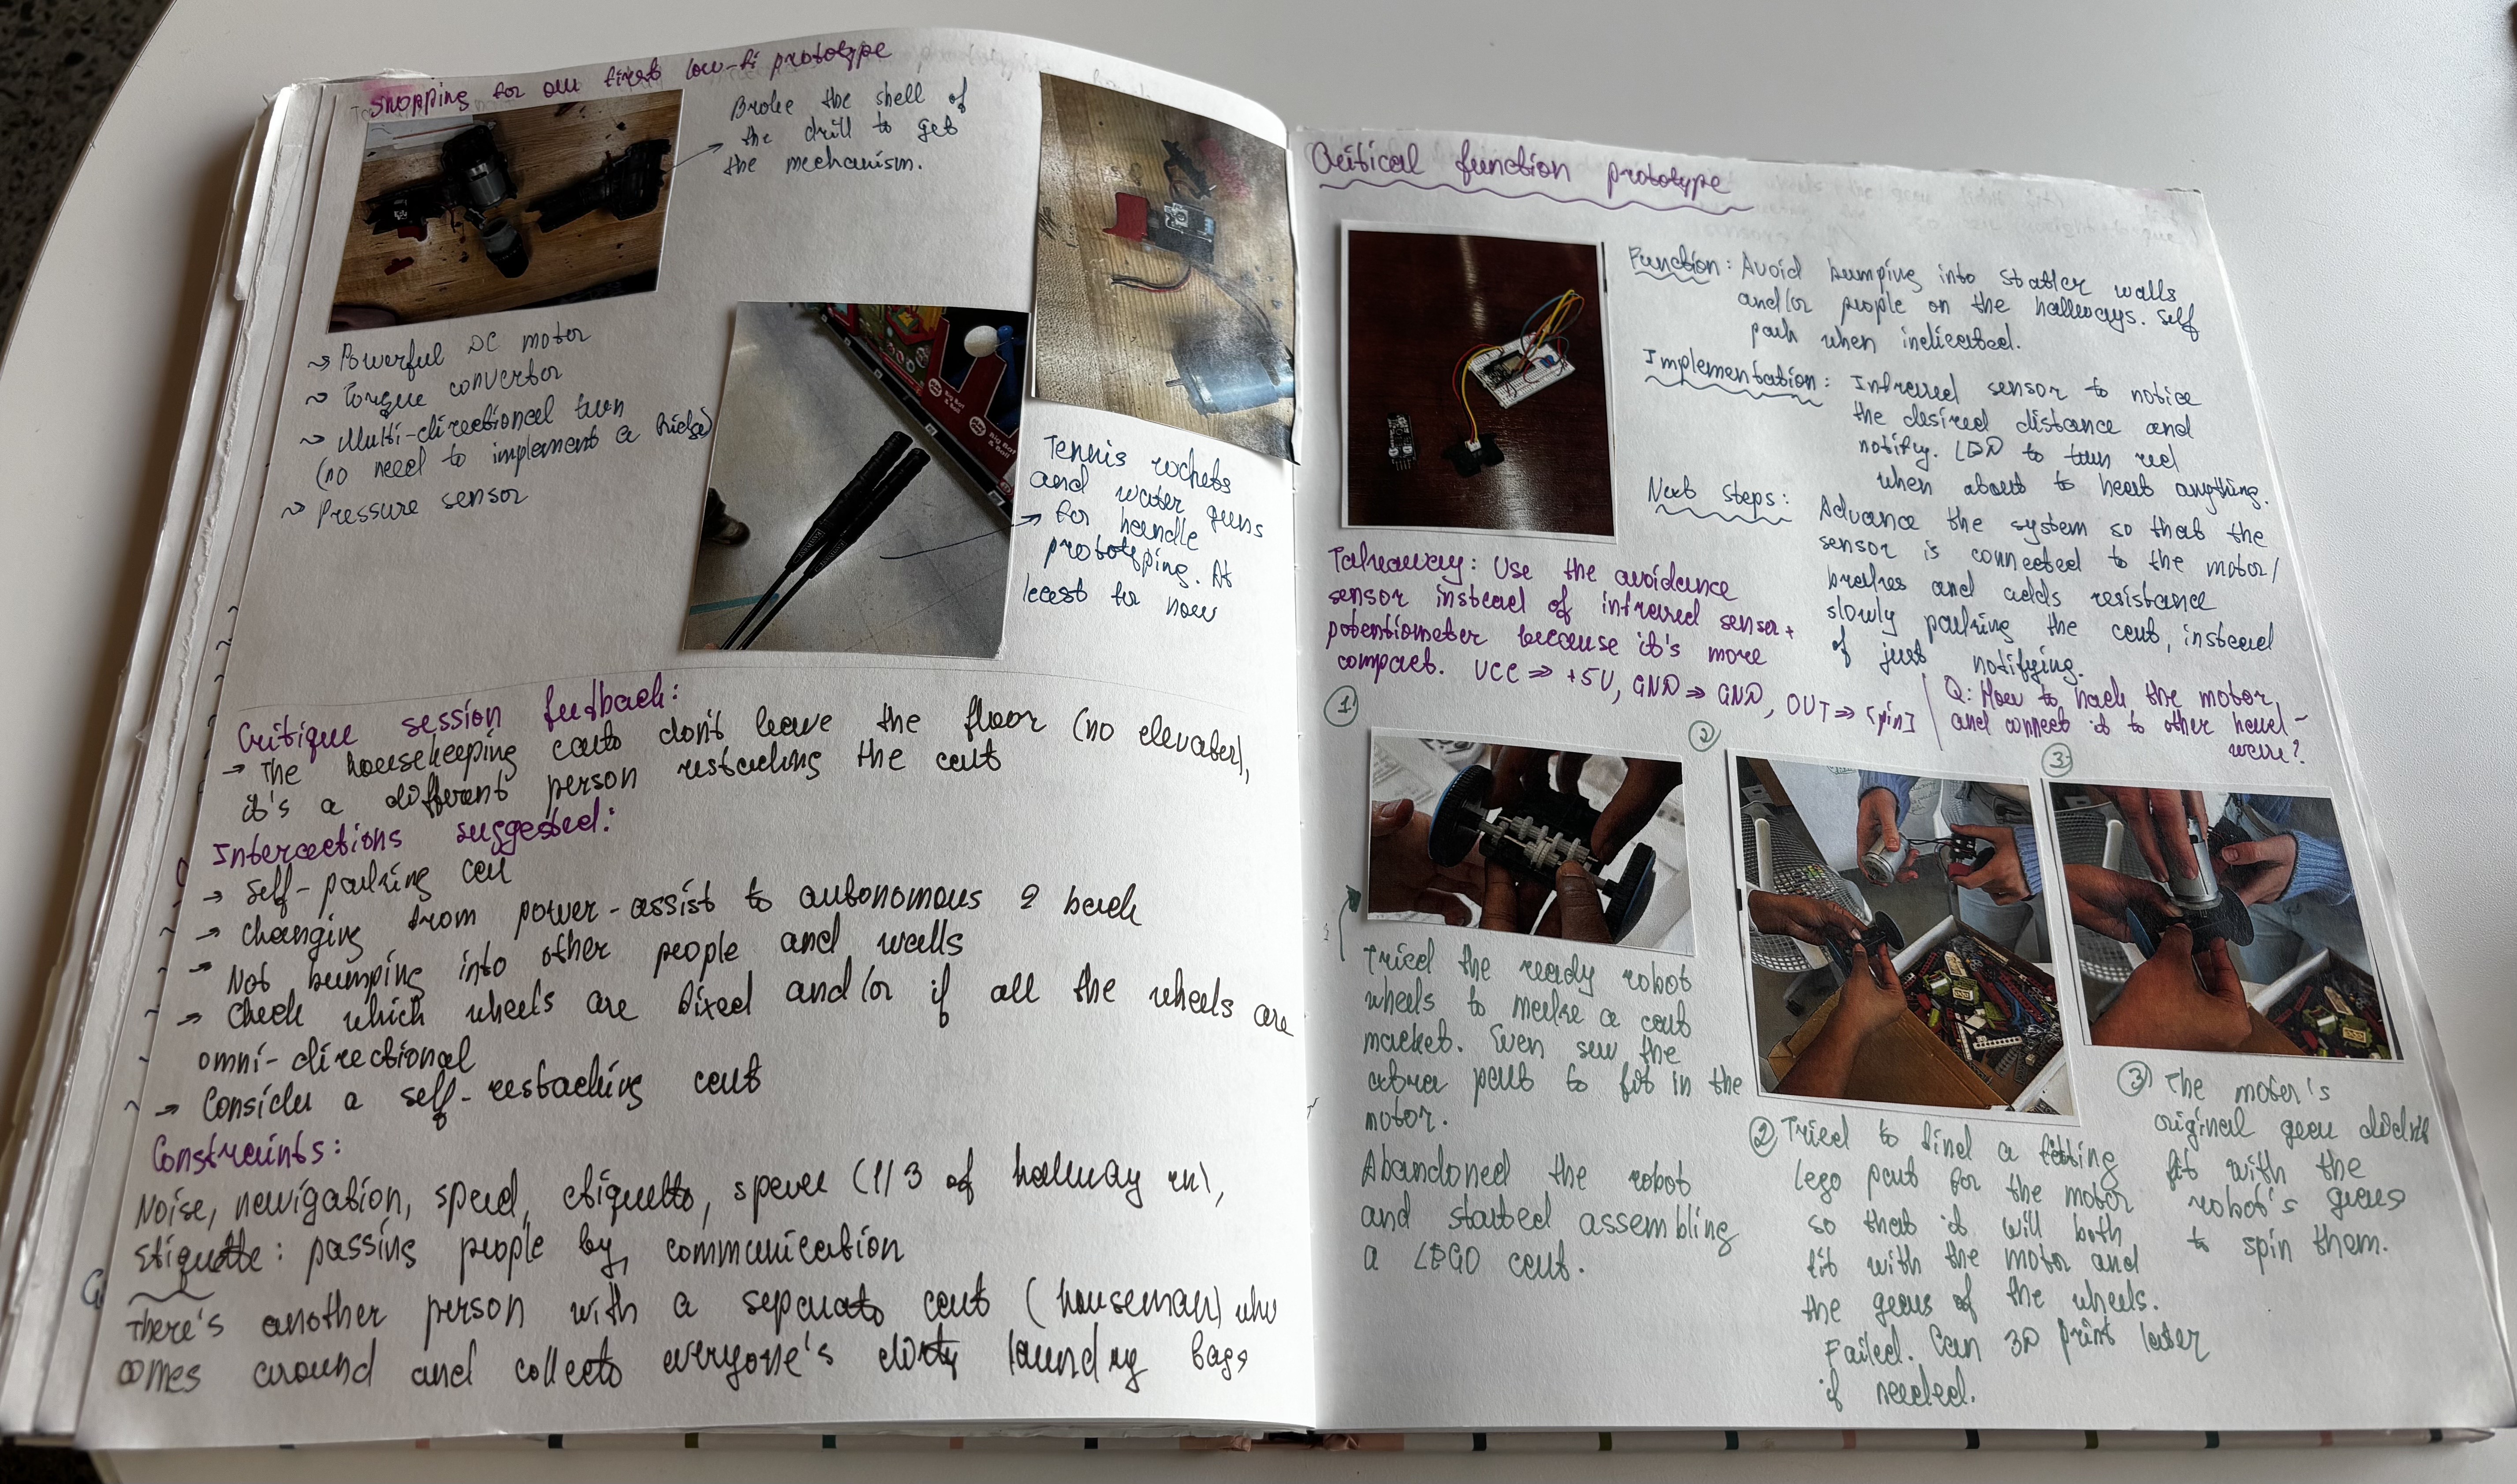 Shopping for our first low-fi prototype
Broke the shell of
the drill to get
the mechanism.
~> Powerful DC motor
~> Torque convertor
~> Multi-directional turn
(no need to implement a bridge)
~> Pressure sensor
Tennis rockets
and water guns
→ for handle
prototyping. At
least for now
Critique session feedback:
→ The housekeeping carts don't leave the floor (no elevator),
it's a different person restocking the cart
Interactions suggested:
→ Self-parking car
→ Changing from power-assist to autonomous & back
→ Not bumping into other people and walls
→ Check which wheels are fixed and/or if all the wheels are
omni-directional
→ Consider a self-restacking cart
Constraints:
Noise, navigation, speed, etiquette, space (1/3 of hallway
Etiquette: passing people by, communication
There's another person with a separate cart (houseman) who
comes around and collects everyone's dirty laundry bags
Critical function prototype
Function: Avoid bumping into Statler walls
and/or people on the hallways. Self
park when indicated.
Implementation: Infrared sensor to notice
the desired distance and
notify. LED to turn red
when about to heat anything.
Next steps: Advance the system so that the
sensor is connected to the motor/
brakes and adds resistance
slowly parking the cart, instead
of just notifying.
Takeaway: Use the avoidance
sensor instead of infrared sensor +
potentiometer because it's more
compact. VCC ⇒ +5V, GND ⇒ GND, OUT ⇒ [pin]
Q: How to hack the motor
and connect it to other hard-
ware?
①
②
③
Tried the ready robot
wheels to make a cart
market. Even saw the
extra part to fit in the
motor.
Abandoned the robot
and started assembling
a LEGO cart.
② Tried to find a fitting
Lego part for the motor
so that it will both
fit with the motor and
the gears of the wheels.
Failed. Can 3D print later
if needed.
③ The motor's
original gear didn't
fit with the
robot's gears
to spin them.